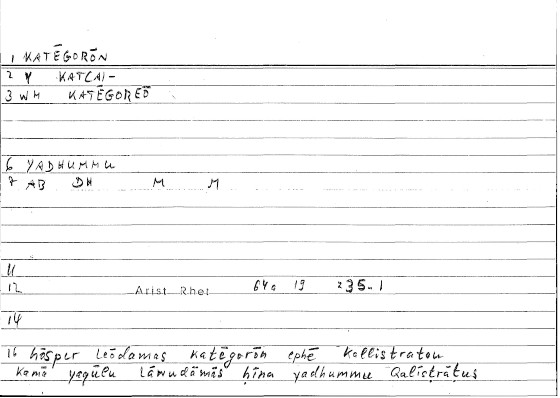 1 KATĒGORŌN
2 Y KAT(A)-
3 WH KATĒGOREŌ
6 YADHUMMU
7 AB DH M M
11
12 Arist Rhet 64a 19 235.1
14
16 hōsper leōdamas katēgorōn ephē kallistratou
kamā yaqūlu Lāwudāmās ḥīna yadhummu Qalisṭrāṭus